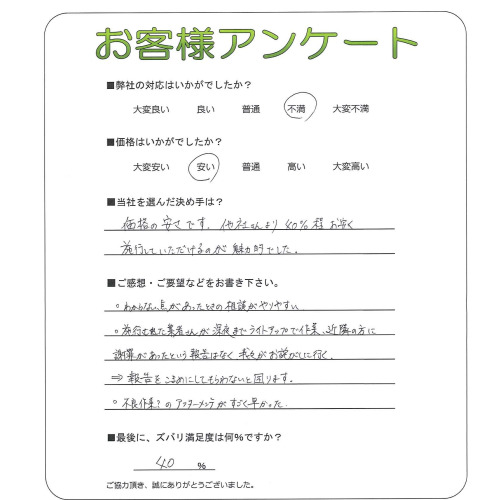 お客様アンケート
■弊社の対応はいかがでしたか？
大変良い 良い 普通 不満 大変不満
■価格はいかがでしたか？
大変安い 安い 普通 高い 大変高い
■当社を選んだ決め手は？
価格の安さです。他社さんより40%程お安く
施行していただけるのが魅力的でした。
■ご感想・ご要望などをお書き下さい。
○わからない点があったときの相談がやりやすい
○施行された業者さんが深夜までライトアップで作業、近隣の方に
謝罪があったという報告はなく我々がお詫びしに行く。
⇒報告をこまめにしてもらわないと困ります。
○不良作業？のアフターメンテがすごく早かった。
■最後に、ズバリ満足度は何％ですか？
40 ％
ご協力頂き、誠にありがとうございました。